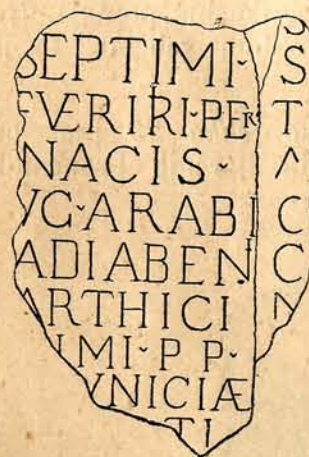 SEPTIMI· S
EVERIRI·PER T
NACIS·
VG·ARABI C
ADIABEN C
ARTHICI N
IMI·P P·
VNICIÆ
TI